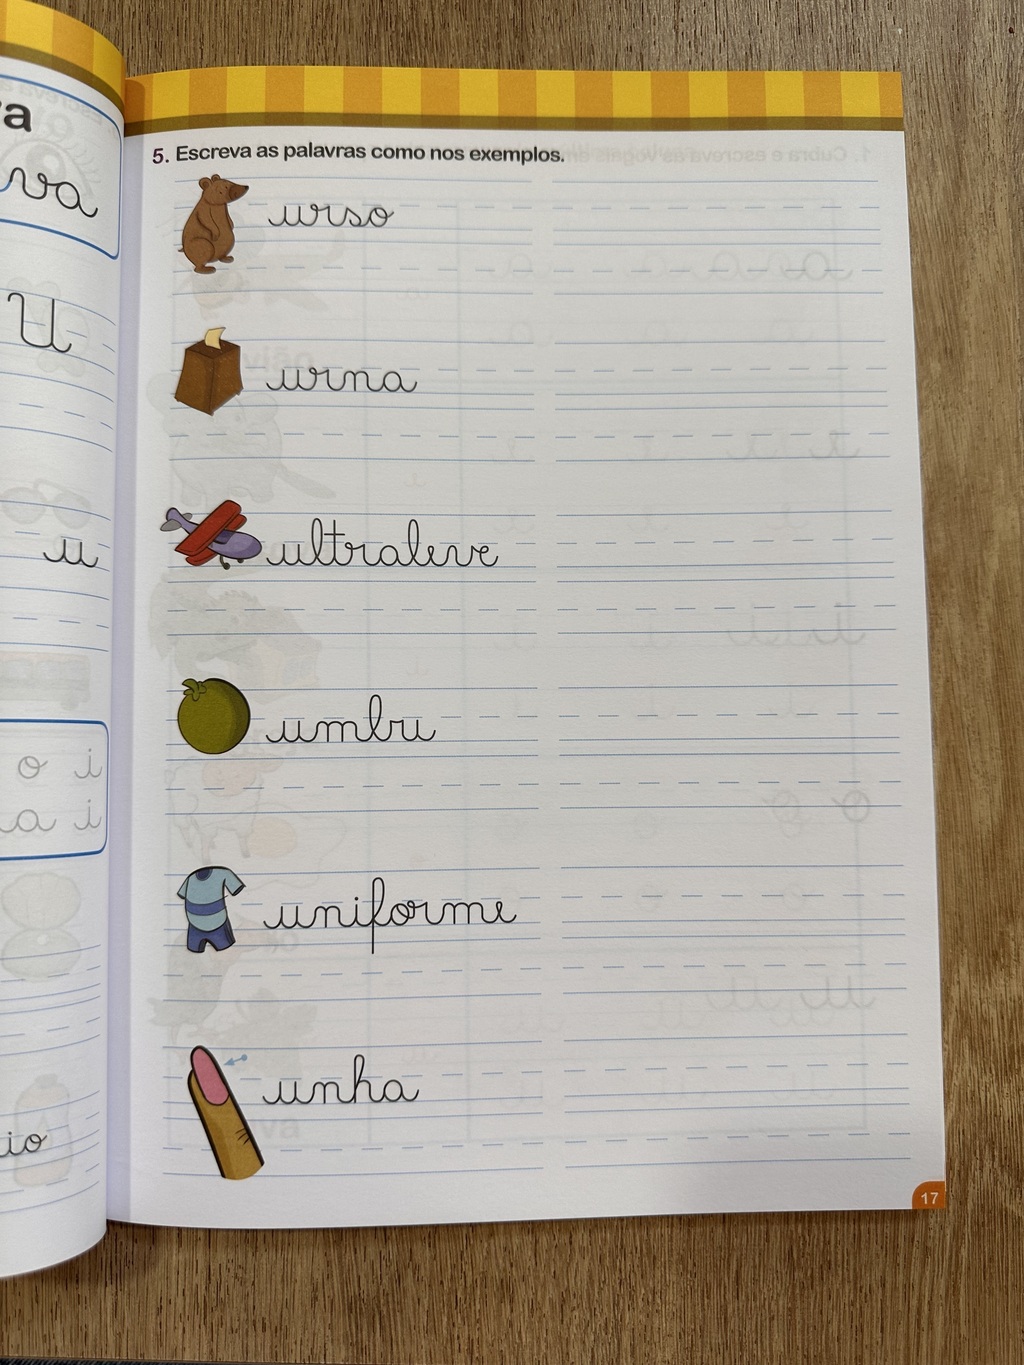 a
va
U
u
o i
a i
io
5. Escreva as palavras como nos exemplos.
urso
urna
ultraleve
umbu
uniforme
unha
17